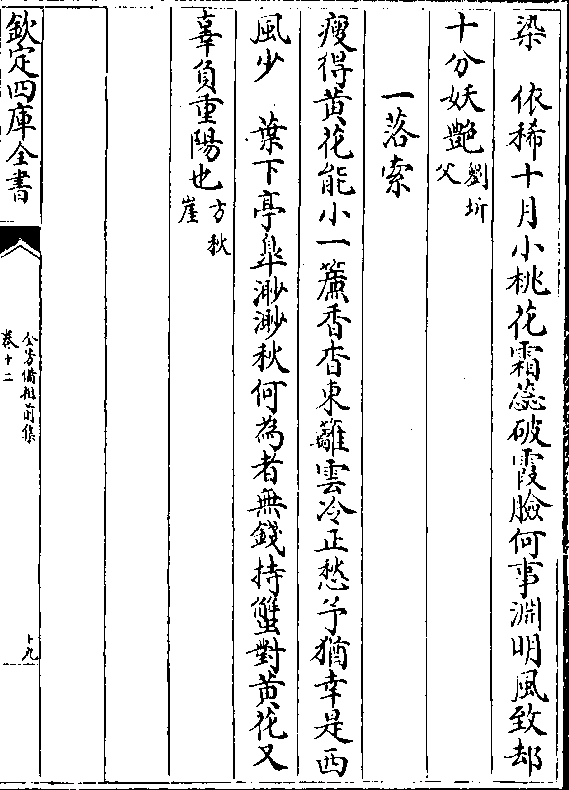 染　依稀十月小桃花霜蕊破霞臉何事淵明風致却
十分妖艷劉圻父
一落索
瘦得黄花能小一簾香杳東籬雲冷正愁予猶幸是西
風少　葉下亭臯渺渺秋何為者無錢持蟹對黄花又
辜負重陽也方秋崖
欽定四庫全書
全芳備祖前集
卷十二
十九